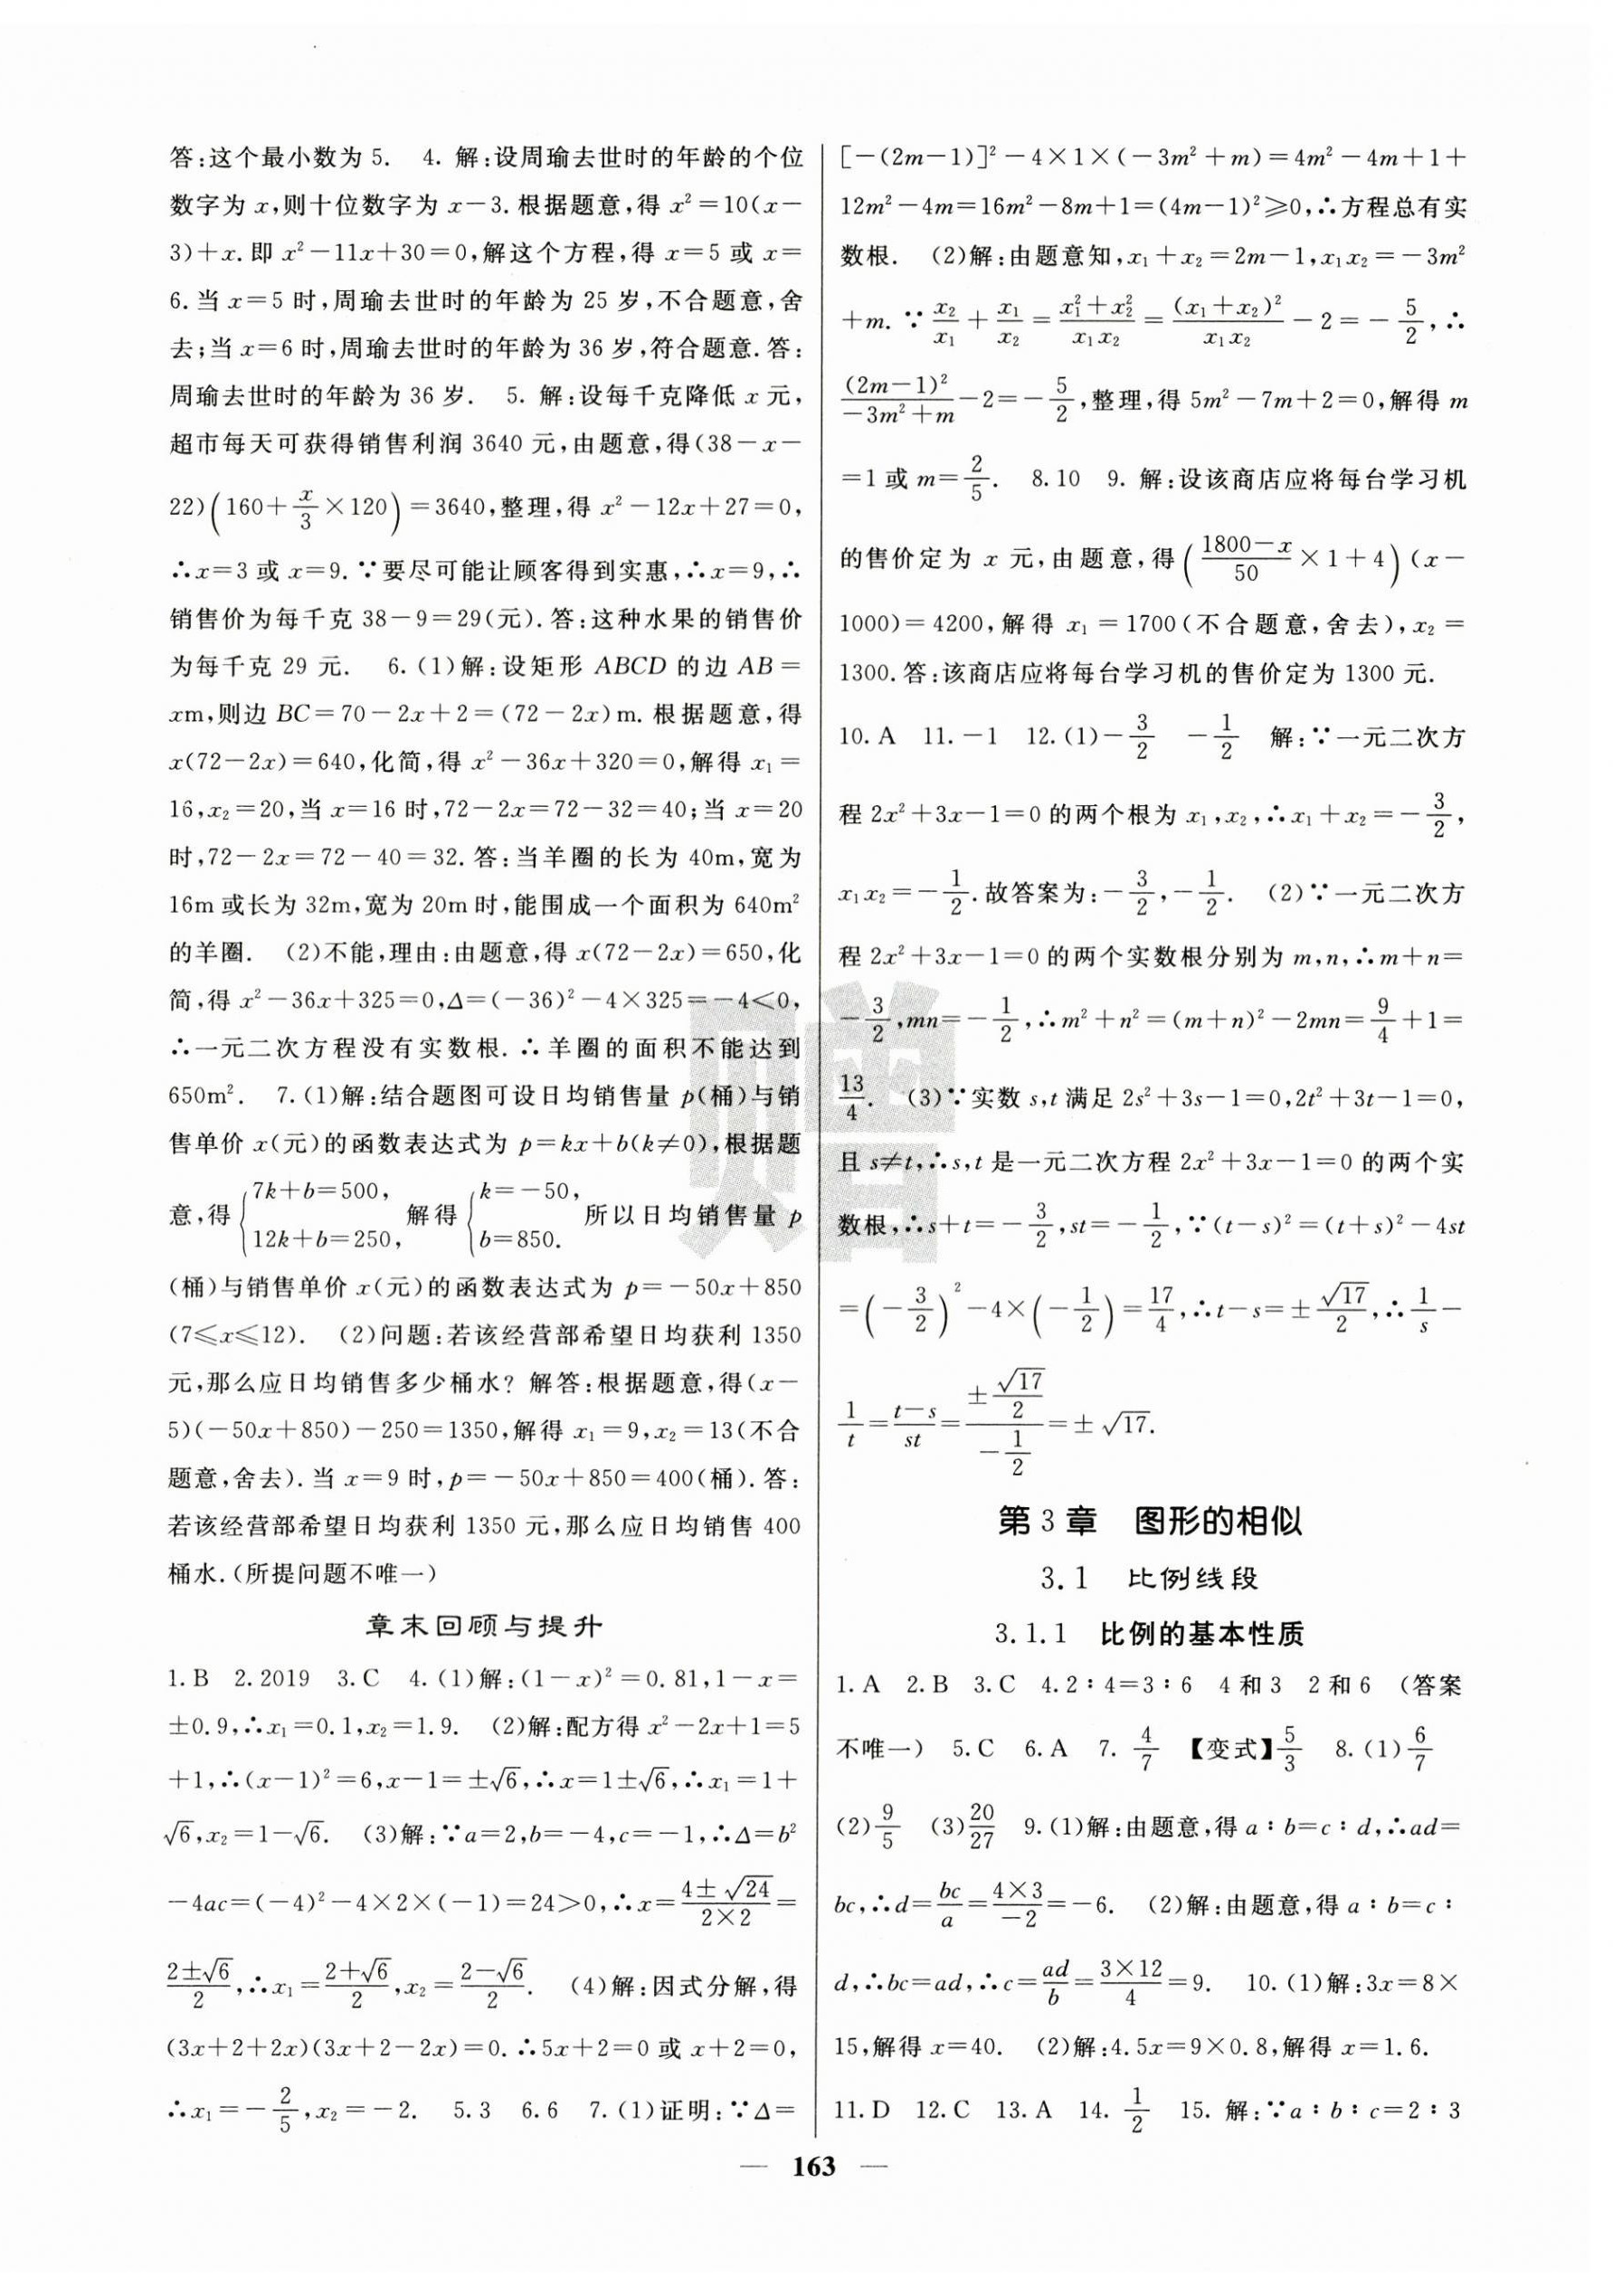 答:这个最小数为 5. 4. 解:设周瑜去世时的年龄的个位
数字为 x,则十位数字为 x-3. 根据题意,得 x²=10(x-
3)+x. 即 x²-11x+30=0,解这个方程,得 x=5 或 x=
6. 当 x=5 时,周瑜去世时的年龄为 25 岁,不合题意,舍
去;当 x=6 时,周瑜去世时的年龄为 36 岁,符合题意. 答:
周瑜去世时的年龄为 36 岁. 5. 解:设每千克降低 x 元,
超市每天可获得销售利润 3640 元,由题意,得(38-x-
22)(160+x/3×120)=3640,整理,得 x²-12x+27=0,
∴x=3 或 x=9. ∵要尽可能让顾客得到实惠,∴x=9,∴
销售价为每千克 38-9=29(元). 答:这种水果的销售价
为每千克 29 元. 6. (1)解:设矩形 ABCD 的边 AB=
xm,则边 BC=70-2x+2=(72-2x)m. 根据题意,得
x(72-2x)=640,化简,得 x²-36x+320=0,解得 x₁=
16,x₂=20,当 x=16 时,72-2x=72-32=40;当 x=20
时,72-2x=72-40=32. 答:当羊圈的长为 40m,宽为
16m 或长为 32m,宽为 20m 时,能围成一个面积为 640m²
的羊圈. (2)不能,理由:由题意,得 x(72-2x)=650,化
简,得 x²-36x+325=0,Δ=(-36)²-4×325=-4<0,
∴一元二次方程没有实数根. ∴羊圈的面积不能达到
650m². 7. (1)解:结合题图可设日均销售量 p(桶)与销
售单价 x(元)的函数表达式为 p=kx+b(k≠0),根据题
意,得{7k+b=500, 12k+b=250, 解得{k=-50, b=850. 所以日均销售量 p
(桶)与销售单价 x(元)的函数表达式为 p=-50x+850
(7≤x≤12). (2)问题:若该经营部希望日均获利 1350
元,那么应日均销售多少桶水? 解答:根据题意,得(x-
5)(-50x+850)-250=1350,解得 x₁=9,x₂=13(不合
题意,舍去). 当 x=9 时,p=-50x+850=400(桶). 答:
若该经营部希望日均获利 1350 元,那么应日均销售 400
桶水. (所提问题不唯一)
章末回顾与提升
1. B 2. 2019 3. C 4. (1)解:(1-x)²=0.81,1-x=
±0.9,∴x₁=0.1,x₂=1.9. (2)解:配方得 x²-2x+1=5
+1,∴(x-1)²=6,x-1=±√6,∴x=1±√6,∴x₁=1+
√6,x₂=1-√6. (3)解:∵a=2,b=-4,c=-1,∴Δ=b²
-4ac=(-4)²-4×2×(-1)=24>0,∴x=(4±√24)/(2×2)=
(2±√6)/2,∴x₁=(2+√6)/2,x₂=(2-√6)/2. (4)解:因式分解,得
(3x+2+2x)(3x+2-2x)=0. ∴5x+2=0 或 x+2=0,
∴x₁=-2/5,x₂=-2. 5. 3 6. 6 7. (1)证明:∵Δ=
[-(2m-1)]²-4×1×(-3m²+m)=4m²-4m+1+
12m²-4m=16m²-8m+1=(4m-1)²≥0,∴方程总有实
数根. (2)解:由题意知,x₁+x₂=2m-1,x₁x₂=-3m²
+m. ∵x₂/x₁+x₁/x₂=(x₁²+x₂²)/(x₁x₂)=(x₁+x₂)²/(x₁x₂)-2=-5/2,∴
(2m-1)²/(-3m²+m)-2=-5/2,整理,得 5m²-7m+2=0,解得 m
=1 或 m=2/5. 8. 10 9. 解:设该商店应将每台学习机
的售价定为 x 元,由题意,得((1800-x)/50×1+4)(x-
1000)=4200,解得 x₁=1700(不合题意,舍去),x₂=
1300. 答:该商店应将每台学习机的售价定为 1300 元.
10. A 11. -1 12. (1)-3/2 -1/2 解:∵一元二次方
程 2x²+3x-1=0 的两个根为 x₁,x₂,∴x₁+x₂=-3/2,
x₁x₂=-1/2. 故答案为:-3/2,-1/2. (2)∵一元二次方
程 2x²+3x-1=0 的两个实数根分别为 m,n,∴m+n=
-3/2,mn=-1/2,∴m²+n²=(m+n)²-2mn=9/4+1=
13/4. (3)∵实数 s,t 满足 2s²+3s-1=0,2t²+3t-1=0,
且 s≠t,∴s,t 是一元二次方程 2x²+3x-1=0 的两个实
数根,∴s+t=-3/2,st=-1/2,∵(t-s)²=(t+s)²-4st
=(-3/2)²-4×(-1/2)=17/4,∴t-s=±√17/2,∴1/s-
1/t=(t-s)/st=(±√17/2)/(-1/2)=±√17.
第 3 章 图形的相似
3.1 比例线段
3.1.1 比例的基本性质
1. A 2. B 3. C 4. 2∶4=3∶6 4 和 3 2 和 6 (答案
不唯一) 5. C 6. A 7. 4/7 【变式】5/3 8. (1)6/7
(2)9/5 (3)20/27 9. (1)解:由题意,得 a∶b=c∶d,∴ad=
bc,∴d=bc/a=(4×3)/(-2)=-6. (2)解:由题意,得 a∶b=c∶
d,∴bc=ad,∴c=ad/b=(3×12)/4=9. 10. (1)解:3x=8×
15,解得 x=40. (2)解:4.5x=9×0.8,解得 x=1.6.
11. D 12. C 13. A 14. 1/2 15. 解:∵a∶b∶c=2∶3
— 163 —
赠